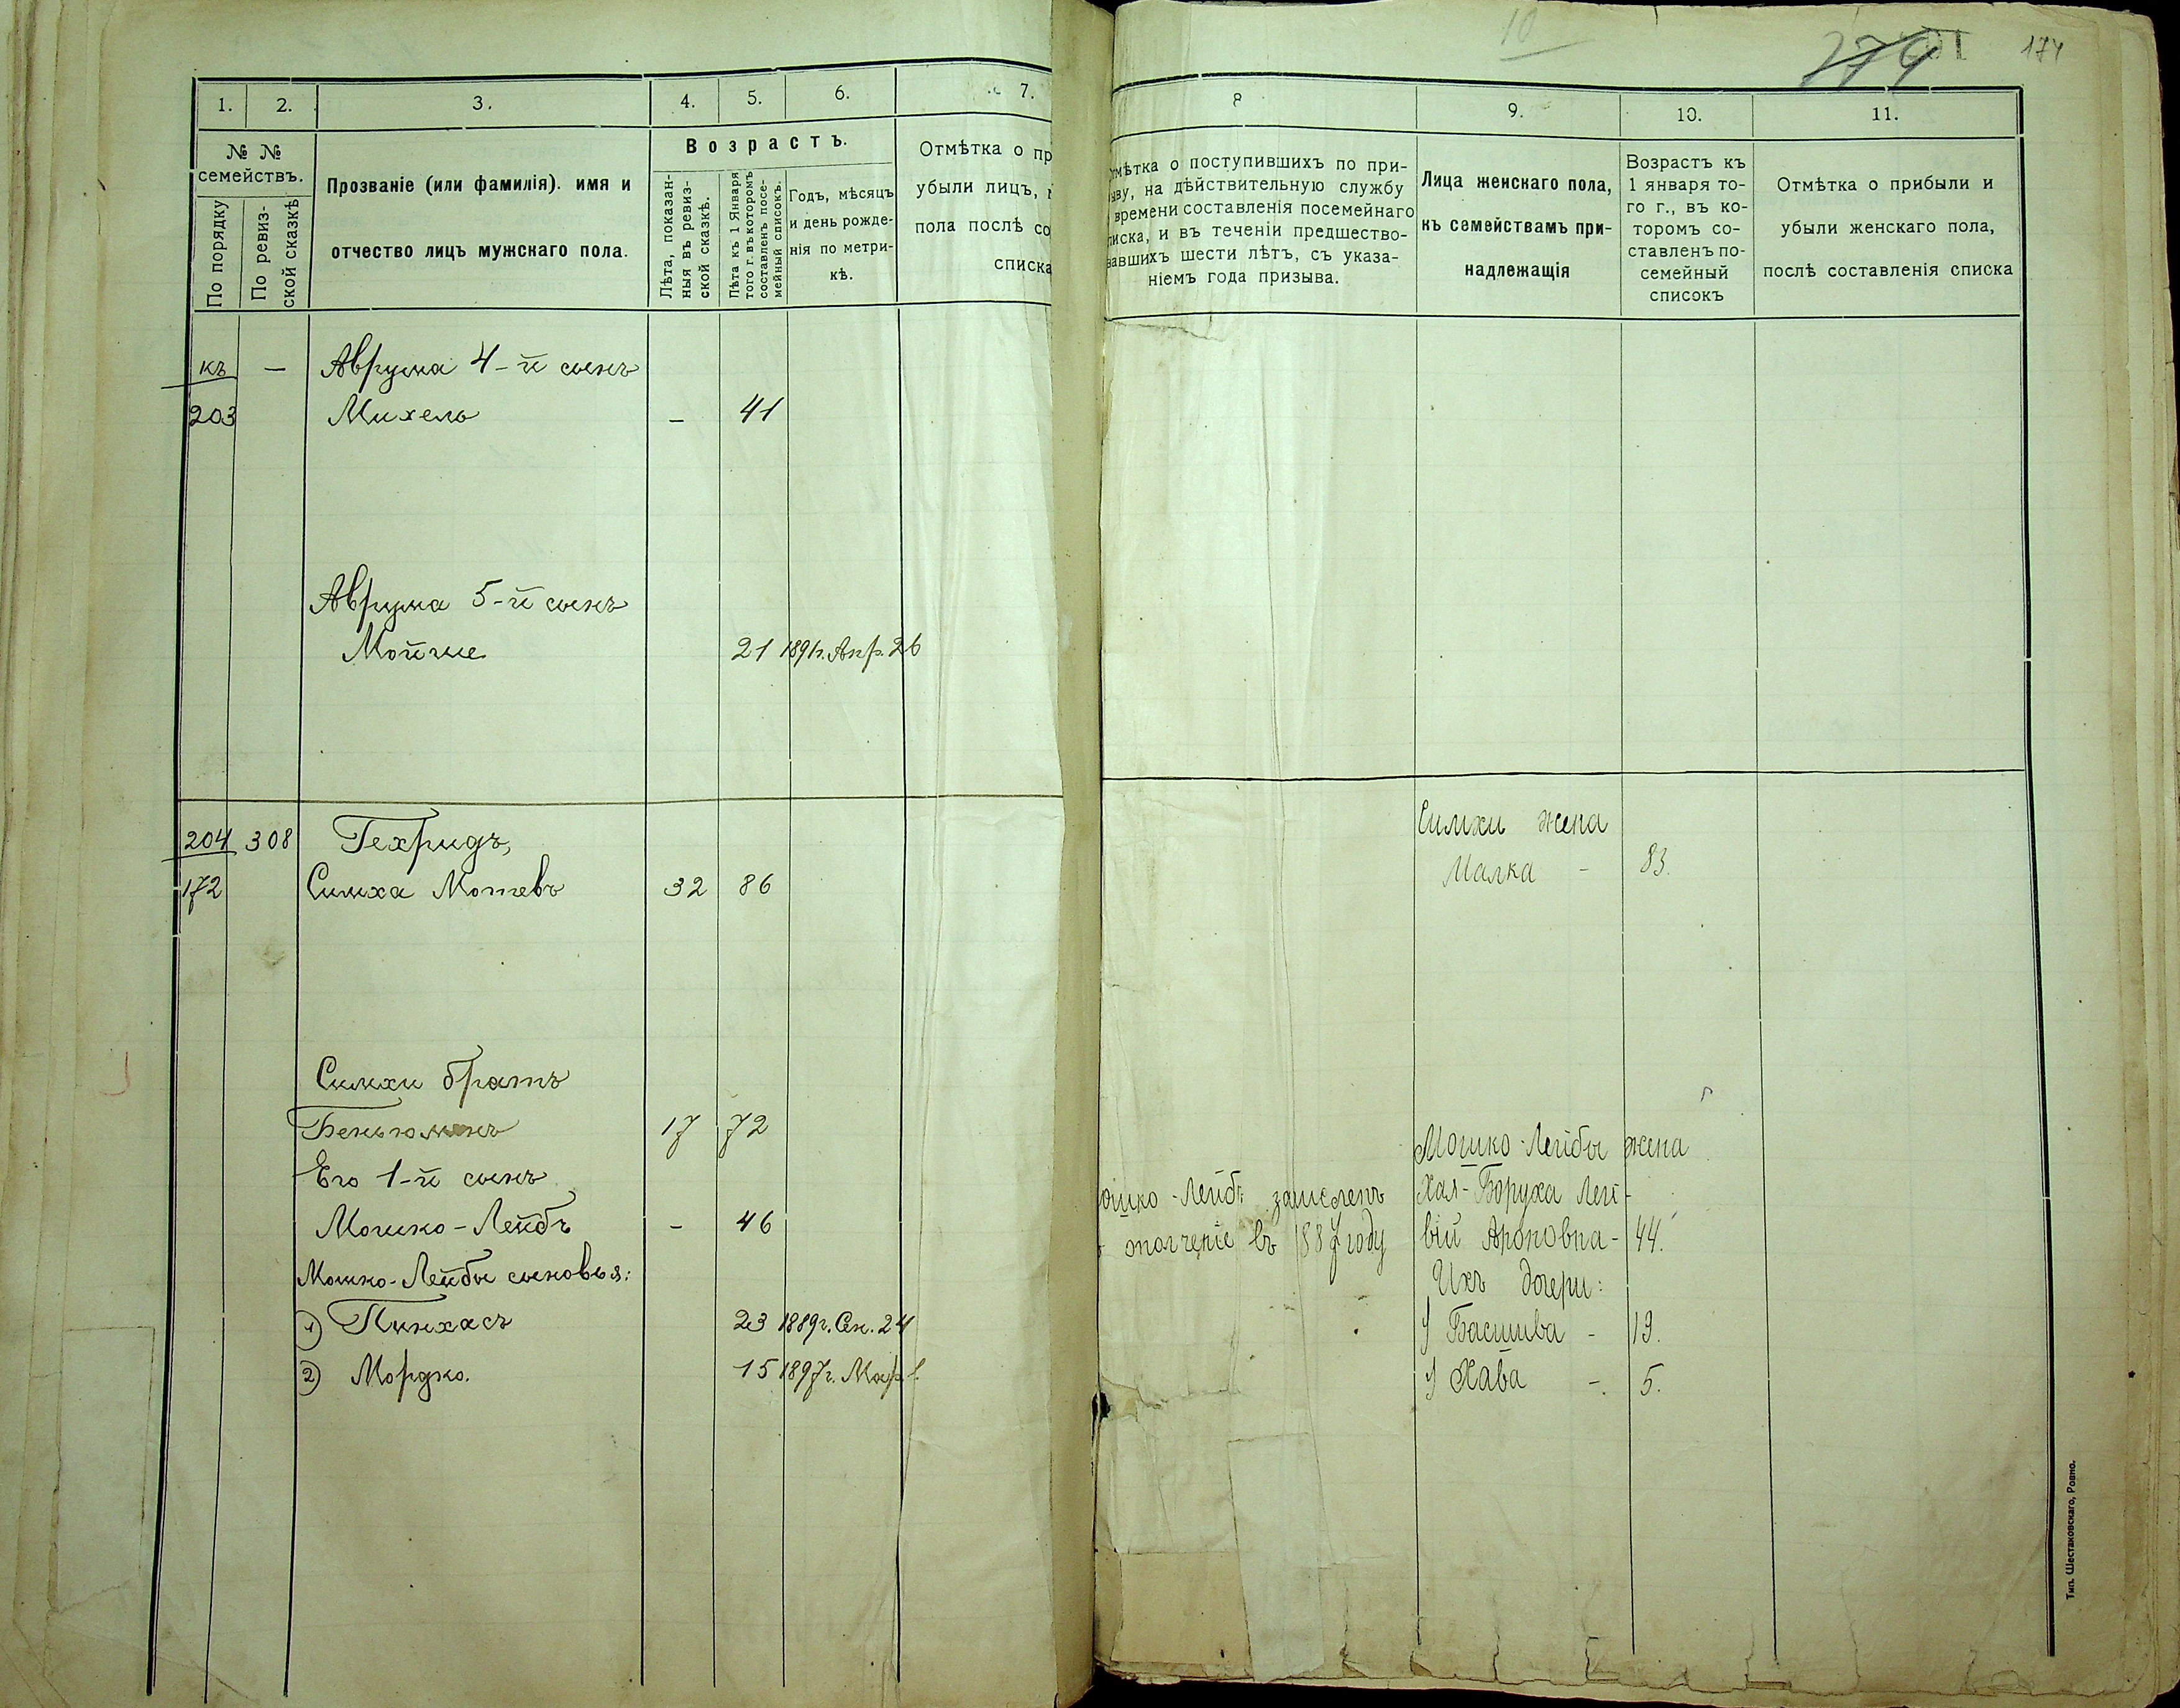 1.
2.
3.
4.
5.
6.
7.
№ №
семействъ.
По порядку
По ревиз-
ской сказкѣ
Прозваніе (или фамилія). имя и
отчество лицъ мужскаго пола.
Возрастъ.
Лѣта, показан-
ныя въ ревиз-
ской сказкѣ.
Лѣта къ 1 Января
того г. въ которомъ
составленъ посе-
мейный списокъ.
Годъ, мѣсяцъ
и день рожде-
нія по метри-
кѣ.
Отмѣтка о пр
убыли лицъ,
пола послѣ со
списка
къ — Аврума 4-й сынъ
203 Михель — 41
Аврума 5-й сынъ
Мойше 21 1891г. Апр. 26
204 308 Гехридъ,
172 Симха Мотевъ 32 86
Симхи братъ
Беньюминъ 17 72
Его 1-й сынъ
Мошко-Лейбъ — 46
Мошко-Лейбы сыновья:
1) Пинхасъ 23 1889г. Сен. 24
2) Мордко. 15 1897г. Мар. 1.
10
274
174
8
9.
10.
11.
мѣтка о поступившихъ по при-
ыву, на дѣйствительную службу
времени составленія посемейнаго
писка, и въ теченіи предшество-
вавшихъ шести лѣтъ, съ указа-
ніемъ года призыва.
Лица женскаго пола,
къ семействамъ при-
надлежащія
Возрастъ къ
1 января то-
го г., въ ко-
торомъ со-
ставленъ по-
семейный
списокъ
Отмѣтка о прибыли и
убыли женскаго пола,
послѣ составленія списка
Симхи жена
Малка - 83.
Мошко-Лейбы жена
ошко-Лейбъ зачисленъ
ополченіе въ 1887 году
Хая-Боруха Лей-
вій Ароновна - 44.
Ихъ дочери:
Басшива - 19.
Хава -. 5.
Тип. Шестаковскаго, Ровно.